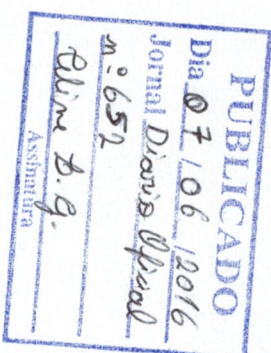 PUBLICADO
Dia 07 / 06 / 2016
Jornal Diario Oficial
nº 652
Aline D. G.
Assinatura